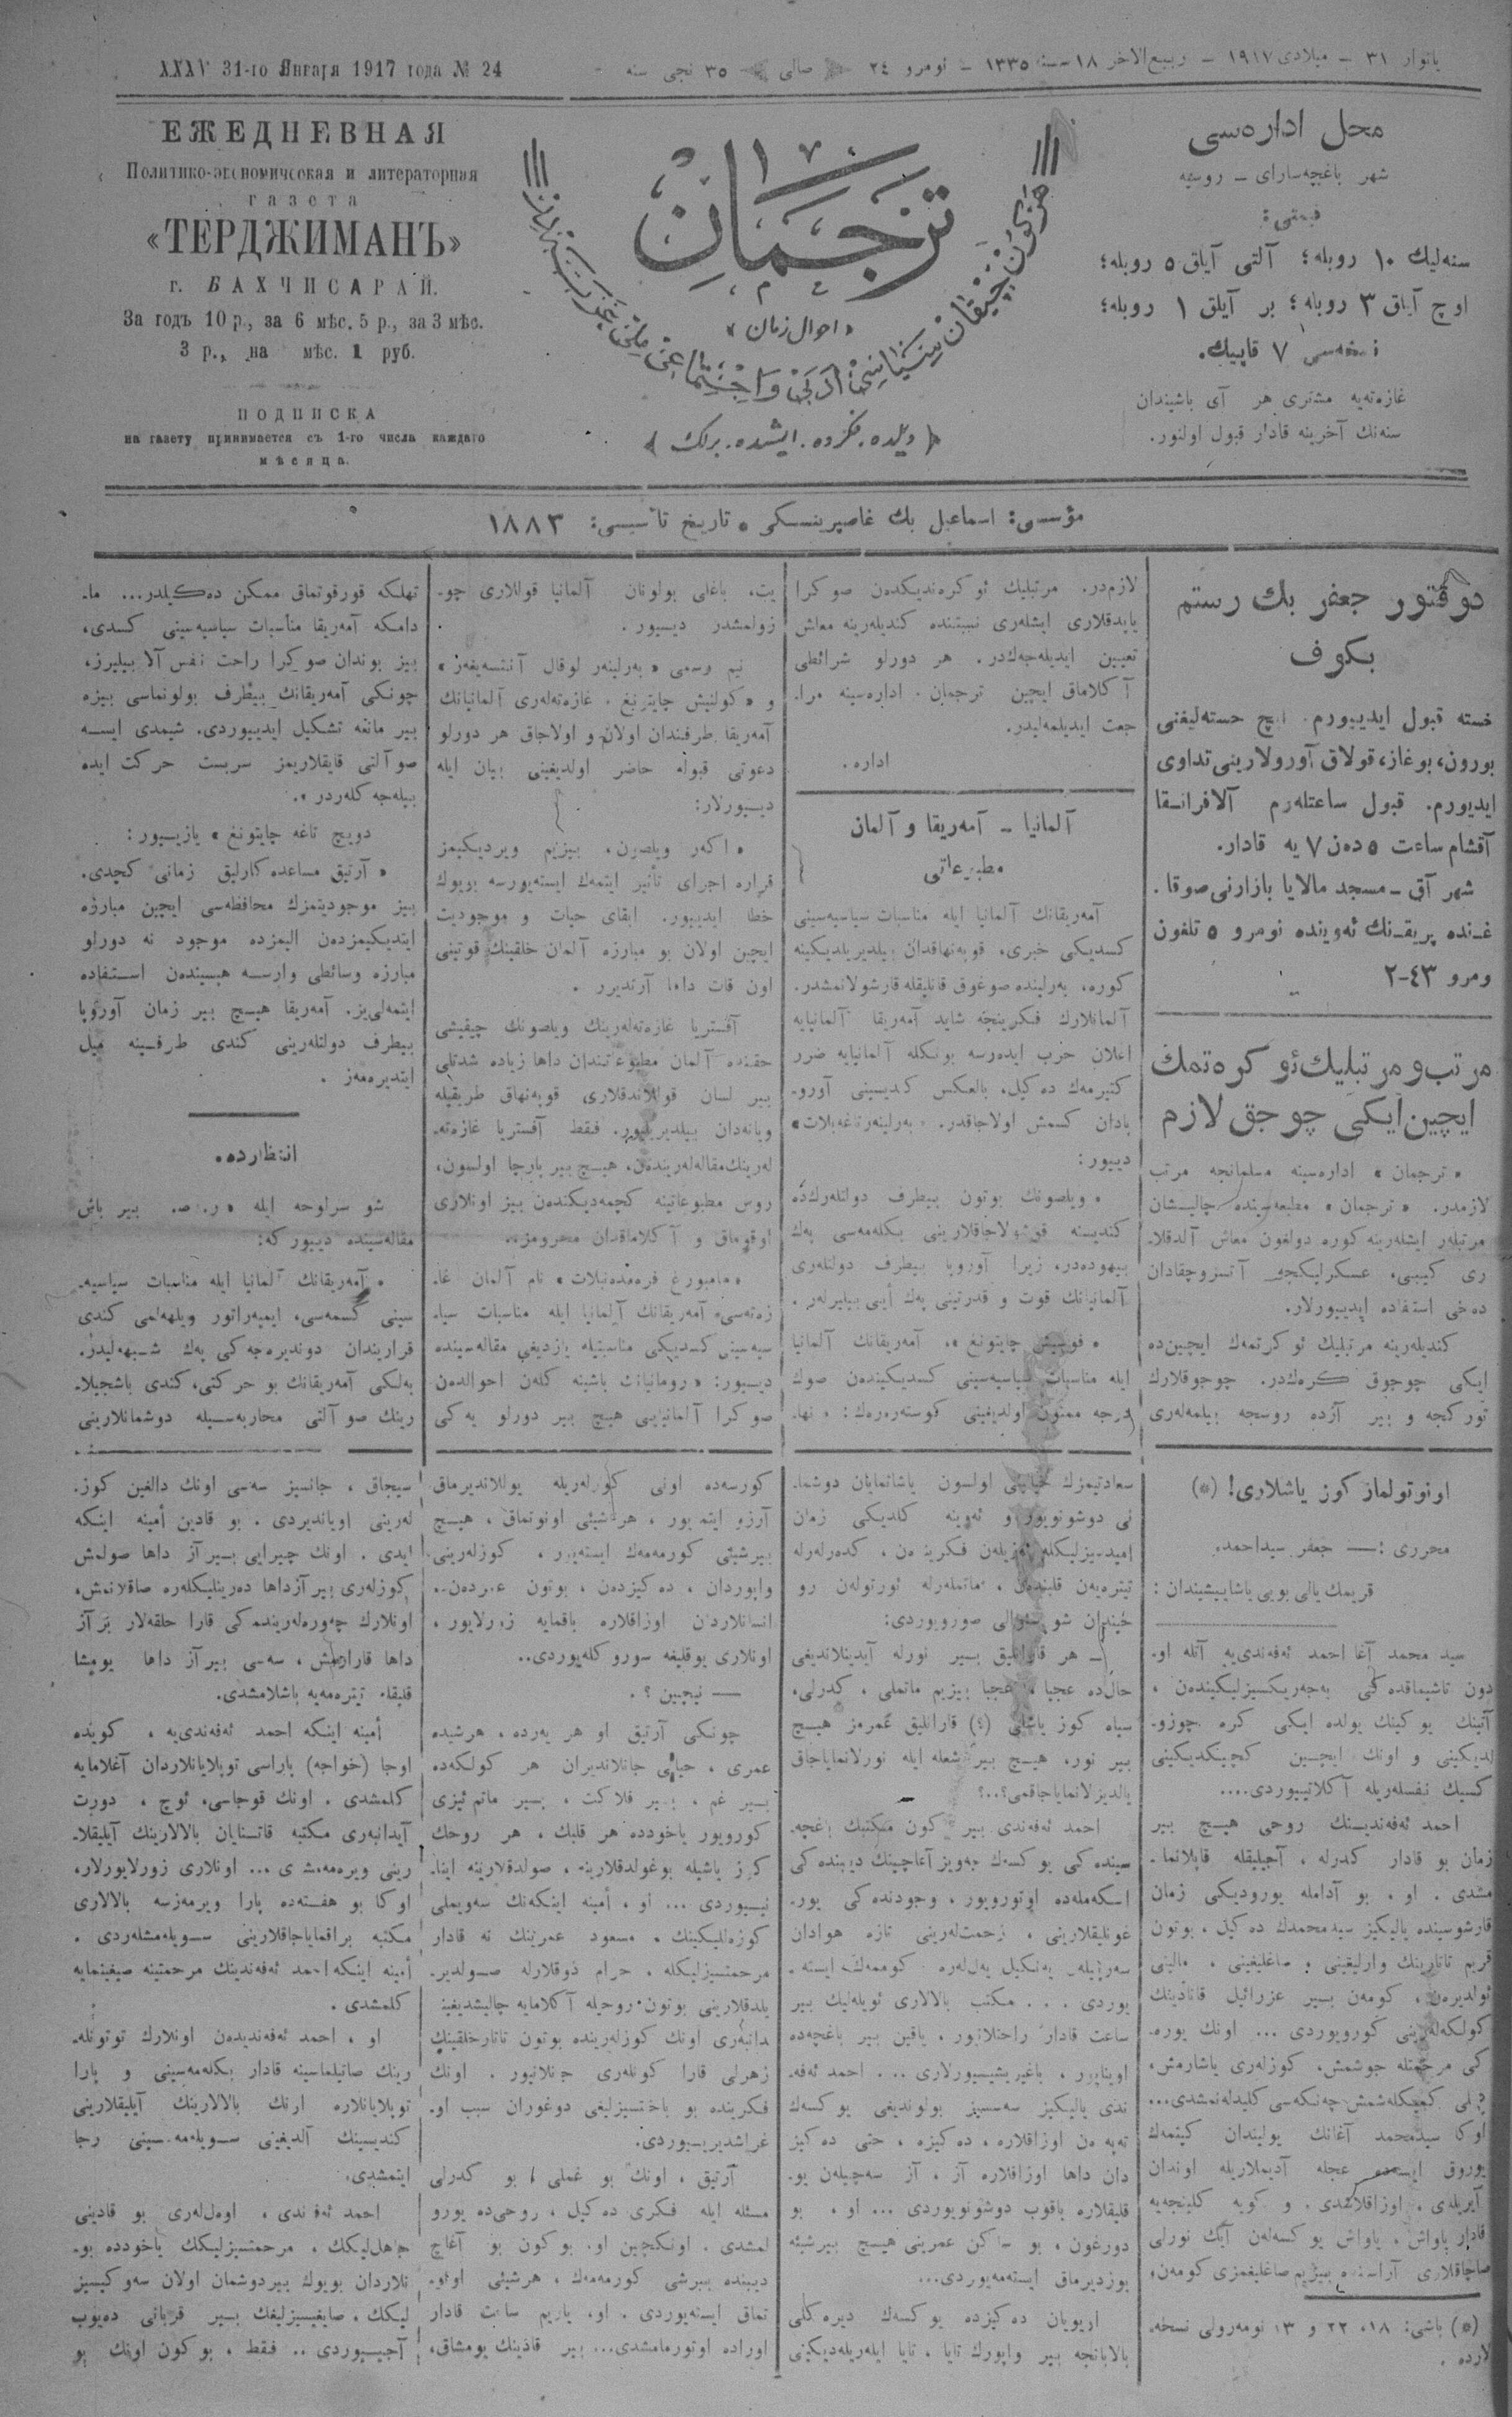 XXXV 31-го Января 1917 года № 24
یانوار ٣١ – میلادی ١٩١٧ – ربیع‌الاخر ١٨ سنهٔ ١٣٣٥ – نومرو ٢٤ صالی ٣٥ نجی سنه
ЕЖЕДНЕВНАЯ
Политико-экономическая и литературная
газета
«ТЕРДЖИМАНЪ»
г. БАХЧИСАРАЙ.
За годъ 10 р., за 6 мѣс. 5 р., за 3 мѣс.
3 р., на мѣс. 1 руб.
ПОДПИСКА
на газету принимается съ 1-го числа каждаго
мѣсяца.
ترجمان
«احوال زمان»
﴿دیلده. فکرده. ایشده. برلك﴾
محل اداره‌سی
شهر باغچه‌سارای – روسیه
قیمتی:
سنه‌لیك ١٠ روبله؛ آلتی آیلق ٥ روبله؛
اوچ آیلق ٣ روبله؛ بر آیلق ١ روبله؛
نسخه‌سی ٧ قاپیك.
غازه‌ته‌یه مشتری هر آی باشیندان
سنه‌نك آخرینه قادار قبول اولنور.
مؤسسی: اسماعیل بك غاصپرینسکی • تاریخ تأسیسی: ١٨٨٣
دوقتور جعفر بك رستم
بکوف
خسته قبول ایدییورم. ایچ خسته‌لیغنی
بورون، بوغاز، قولاق آورولارینی تداوی
ایدیورم. قبول ساعتله‌رم آلافرانسقا
آقشام ساعت ٥ ده‌ن ٧ یه قادار.
شهر آق – مسجد مالایا بازارنی صوقا.
غنده پریقـنك ئه‌وینده نومرو ٥ تلفون
ومرو ٤٣–٢
مرتب و مرتبلیك ئوكره‌تمك
ایچین ایکی چوجق لازم
«ترجمان» اداره‌سینه مسلمانجه مرتب
لازمدر. «ترجمان» مطبعه‌سینده چالیشان
مرتبلەر ایشله‌رینه کوره دولغون معاش آلدقلا-
ری کیبی، عسکرلیکجه آتسروچقادان
ده‌خی استفاده ایدییورلار.
کندیله‌رینه مرتبلیك ئوکرتمه‌ك ایچین‌ده
ایکی چوجوق کره‌کدر. چوجوقلارك
تورکجه و بیر آزده روسجه بیلمه‌له‌ری
لازم‌در. مرتبلیك ئوکره‌ندیکدەن صوکرا
یاپدقلاری ایشله‌ری نسبتنده کندیله‌رینه معاش
تعیین ایدیله‌جه‌کدر. هر دورلو شرائطی
آکلاماق ایچین ترجمان اداره‌سینه مرا-
جعت ایدیلمه‌لیدر.
اداره.
آلمانیا – آمه‌ریقا و آلمان
مطبوعاتی
آمه‌ریقانك آلمانیا ایله مناسبات سیاسیه‌سینی
کسدیکی خبری، قوپه‌نهاقدان بیلدیریلدیکینه
کوره، به‌رلینده صوغوق قانلیقله قارشولانمشدر.
آلمانلارك فکرینجه شاید آمه‌ریقا آلمانیایه
اعلان حرب ایده‌رسه بونکله آلمانیایه ضرر
کتیرمه‌ك ده‌کیل، بالعکس کندیسینی آورو-
پادان کسمش اولاجاقدر. «به‌رلینه‌ر تاغه‌بلات»
دییور:
«ویلصونك بوتون بیطرف دولتله‌رك‌ده
کندیسنه قوشولاجاقلارینی بکله‌مه‌سی پك
بیهوده‌در، زیرا آوروپا بیطرف دولتله‌ری
آلمانیانك قوت و قدرتینی پك أیی بیلیرلەر.
«فوسیش چایتونغ»، آمه‌ریقانك آلمانیا
ایله مناسبات سیاسیه‌سینی کسدیکیندەن صوك
درجه ممنون اولدیغینی کوسته‌ره‌رەك: «نها-
یت، باغلی بولونان آلمانیا قوللاری چو-
زولمشدر دییور.
نیم رسمی «به‌رلینه‌ر لوقال آنتسه‌یغه‌ز»
و «کولنیش چایتونغ» غازه‌ته‌له‌ری آلمانیانك
آمه‌ریقا طرفندان اولان و اولاجاق هر دورلو
دعوتی قبوله حاضر اولدیغینی بیان ایله
دییورلار:
«اکر ویلصون، بیزیم ویردیکیمز
قراره اجرای تأثیر ایتمه‌ك ایسته‌یورسه بویوك
خطا ایدییور. ابقای حیات و موجودیت
ایچین اولان بو مبارزه آلمان خلقینك قوتینی
اون قات داها آرتدیرر.
آفستریا غازه‌ته‌له‌رینك ویلصونك چیقیشی
حقنده آلمان مطبوعاتندان داها زیاده شدتلی
بیر لسان قوللاندقلاری قوپه‌نهاق طریقیله
ویانه‌دان بیلدیریلیور. فقط آفستریا غازه‌ته-
له‌رینك مقاله‌له‌ریندەن، هیچ بیر پارچا اولسون،
روس مطبوعاتینه کچمه‌دیکندەن بیز اونلاری
اوقوماق و آکلاماقدان محرومز..
«هامبورغ فره‌مده‌نبلات» نام آلمان غا-
زه‌ته‌سی، آمه‌ریقانك آلمانیا ایله مناسبات سیا-
سیه‌سینی کسدیکی مناسبتیله یازدیغی مقاله‌سینده
دییور: «رومانیانك باشینه کلەن احوالدەن
صوکرا آلمانیایی هیچ بیر دورلو یه‌کی
تهلکه قورقوتماق ممکن ده‌کیلدر... ما-
دامکه آمه‌ریقا مناسبات سیاسیه‌سینی کسدی،
بیز بوندان صوکرا راحت نفس آلا بیلیرز،
چونکی آمه‌ریقانك بیطرف بولونماسی بیزه
بیر مانعه تشکیل ایدییوردی. شیمدی ایسه
صو آلتی قایقلاریمز سربست حرکت ایده
بیله‌جه‌کلەردر».
دویچ تاغه چایتونغ» یازییور:
«آرتیق مساعده‌کارلیق زمانی کچدی.
بیز موجودیتمزك محافظه‌سی ایچین مبارزه
ایتدیکیمزدەن الیمزده موجود نه دورلو
مبارزه وسائطی وارسه هپسیندەن استفاده
ایتمه‌لی‌یز. آمه‌ریقا هیچ بیر زمان آوروپا
بیطرف دولتله‌رینی کندی طرفینه میل
ایتدیره‌مه‌ز.
انتظارده.
شو سرلوحه ایله «ر. ص. بیر باش
مقاله‌سینده دییور که:
«آمه‌ریقانك آلمانیا ایله مناسبات سیاسیه-
سینی کسمه‌سی، ایمپه‌راتور ویلهه‌لمی کندی
قراریندان دوندیره‌جه‌کی پك شبهه‌لیدر.
به‌لکی آمه‌ریقانك بو حرکتی، کندی باشجیلا-
رینك صو آلتی محاربه‌سیله دوشمانلارینی
اونوتولماز کوز یاشلاری! (*)
محرری: — جعفر سیداحمد.
قریمك یالی بویی یاشاییشیندان:
سید محمد آغا احمد ئه‌فه‌ندی‌یه آتله او-
دون تاشیماقده کی به‌جه‌ریکسیزلیکیندەن،
آتینك یوکینك یولده ایکی کره چوزو-
لدیکینی و اونك ایچین کچیکدیکینی
کسیك نفسله‌ریله آکلاتیییوردی....
احمد ئه‌فه‌ندیسنك روحی هیچ بیر
زمان بو قادار کدرله، آجیلیقله قاپلانما-
مشدی. او، بو آدامله یورودیکی زمان
قارشوسینده یالیکیز سیدمحمدك ده‌کیل، بوتون
قریم تاتارینك وارلیغینی و صاغلیغینی، مالینی
ئولدیرەن، کومەن بیر عزرائیل قانادینك
کولکه‌له‌رینی کورویوردی... اونك یوره-
کی مرحمتله جوشمش، کوزله‌ری یاشارمش،
دیلی کچکله‌شمش چه‌نکه‌سی کلیدله‌نمشدی...
اوکا سیدمحمد آغانك یولیندان کیتمه‌ك
بوروق ایسته‌ده عجله آدیملاریله اوندان
آیریله‌ی، اوزاقلاشدی. و کویه کلینجه‌یه
قادار یاواش، یاواش یوکسه‌لەن آیك نورلی
صاچاقلاری آراسنده بیزیم صاغلیغمزی کومەن،
(*) باشی: ١٨، ٢٢ و ٢٣ نومه‌رولی نسخه-
لارده.
سعادتیمزك خیالینی اولسون یاشاتمایان دوشما-
نی دوشونویور و ئه‌وینه کلدیکی زمان
امیدسیزلیکله ئه‌زیلەن فکریندەن، کده‌رله‌رله
تیتره‌یەن قلبیندەن، ماتمله‌رله ئورتولەن رو
حیندان شو سوالی صورویوردی:
— هر قارانلیق بیر نورله آیدینلاندیغی
حال‌ده عجبا، عجبا بیزیم ماتملی، کدرلی،
سیاه کوز یاشلی (؟) قارانلیق عمرمز هیچ
بیر نور، هیچ بیر شعله ایله نورلانمایاجاق
یالدیزلانمایاجاقمی؟..؟
احمد ئه‌فه‌ندی بیر کون مکتبك باغچه-
سینده کی یوکسه‌ك جه‌ویز آغاچینك دیبنده کی
اسکه‌مله‌ده اوتورویور، وجودنده کی یور-
غونلیقلارینی، زحمت‌له‌رینی تازه هوادان
یوردی... مکتب بالالاری ئویله‌لیك بیر
ساعت قادار راحتلانیور، یاقین بیر باغچه‌ده
اوینایور، باغیریشییورلاری... احمد ئه‌فه-
ندی یالیکیز سه‌سسیز بولوندیغی یوکسه‌ك
تپه دەن اوزاقلاره، ده‌کیزه، حتی ده‌کیز
دان داها اوزاقلاره آز، آز سه‌چیلەن بو-
قلیقلاره باقوب دوشونویوردی... او، بو
دورغون، بو ساکن عمرینی هیچ بیرشیئه
بوزدیرماق ایسته‌مه‌یوردی...
اریویان ده‌کیزده یوکسه‌ك دیره‌کلی
بالابانجه بیر واپورك تایا، تایا ایله‌ریله‌دیکینی
کورسه‌ده اونی کوزله‌ریله یوللاندیرماق
آرزو ایتمه‌یور، هرشیئی اونوتماق، هیچ
بیرشیئی کورمه‌مه‌ك ایسته‌یور، کوزله‌رینی
واپوردان، ده‌کیزدەن، بوتون عمردەن،
انسانلاردن اوزاقلاره باقمایه زورلایور،
اونلاری یوقلیغه سورو کله‌یوردی..
— نیچین؟.
چونکی آرتیق او هر یه‌رده، هرشیده
عمری، حیاتی جانلاندیران هر کولکه‌ده
بیر غم، بیر فلاکت، بیسر ماتم ئیزی
کورویور یاخودده هر قلبك، هر روحك
کوز یاشیله بوغولدقلارینه، صولدقلارینه اینا-
نییوردی... او، أمینه اینکه‌نك سه‌ویملی
کوزه‌للیکینك، مسعود عمرینك نه قادار
مرحمتسیزلیکله، حرام ذوقلارله صولدیر-
یلدقلارینی بوتون روحیله آکلامایه چالیشدیغین
دانبه‌ری اونك کوزله‌رینده بوتون تاتارخلقینك
زهرلی قارا کونله‌ری جانلانیور. اونك
فکرینده بو باختسیزلیغی دوغوران سبب او-
غراشدیرییوردی.
آرتیق، اونك بو غملی، بو کدرلی
مسئله ایله فکری ده‌کیل، روحی‌ده یورو
لمشدی. اونکچین او، بوکون بو آغاچ
دیبنده بیرشی کورمه‌مه‌ك، هرشیئی اونو-
تماق ایسته‌یوردی. او، یاریم ساعت قادار
اوراده اوتورمامشدی... بیر قادینك یومشاق،
سیجاق، جانسیز سه‌سی اونك دالغین کوز-
له‌رینی اویاندیردی. بو قادین أمینه اینکه
ایدی. اونك چیرایی بیر آز داها صولمش
کوزله‌ری بیر آز داها ده‌رینلیکله‌ره صاقلانمش،
اونلارك چه‌وره‌له‌رینده‌کی قارا حلقه‌لار بر آز
داها قارارمش، سه‌سی بیر آز داها یومشا
قلیقله تیتره‌مه‌یه باشلامشدی.
أمینه اینکه احمد ئه‌فه‌ندی‌یه، کویده
اوجا (خواجه) پاراسی توپلایانلاردان آغلامایه
کلمشدی. اونك قوجاسی، ئوچ، دورت
آیدانبه‌ری مکتبه قاتنایان بالالارینك آیلیقلا-
رینی ویره‌مه‌مشدی... اونلاری زورلایورلار،
اوکا بو هفته‌ده پارا ویرمه‌زسه بالالاری
مکتبه براقمایاجاقلارینی سویله‌مشله‌ردی.
أمینه اینکه احمد ئه‌فه‌ندینك مرحمتینه صیغینمایه
کلمشدی.
او، احمد ئه‌فه‌ندیدەن اونلارك توتونله-
رینك صاتیلماسینه قادار بکله‌مه‌سینی و پارا
توپلایانلاره اونك بالالارینك آیلیقلارینی
کندیسینك آلدیغینی سویله‌مه‌سینی رجا
ایتمشدی.
احمد ئه‌فه‌ندی، اول‌له‌ری بو قادینی
جاهل‌لیکك، مرحمتسیزلیکك یاخودده بو-
نلاردان بویوك بیردوشمان اولان سه‌وکیسیز
لیکك، صایغیسیزلیغك بیر قربانی ده‌یوب
آجییوردی.. فقط، بو کون اونك بو